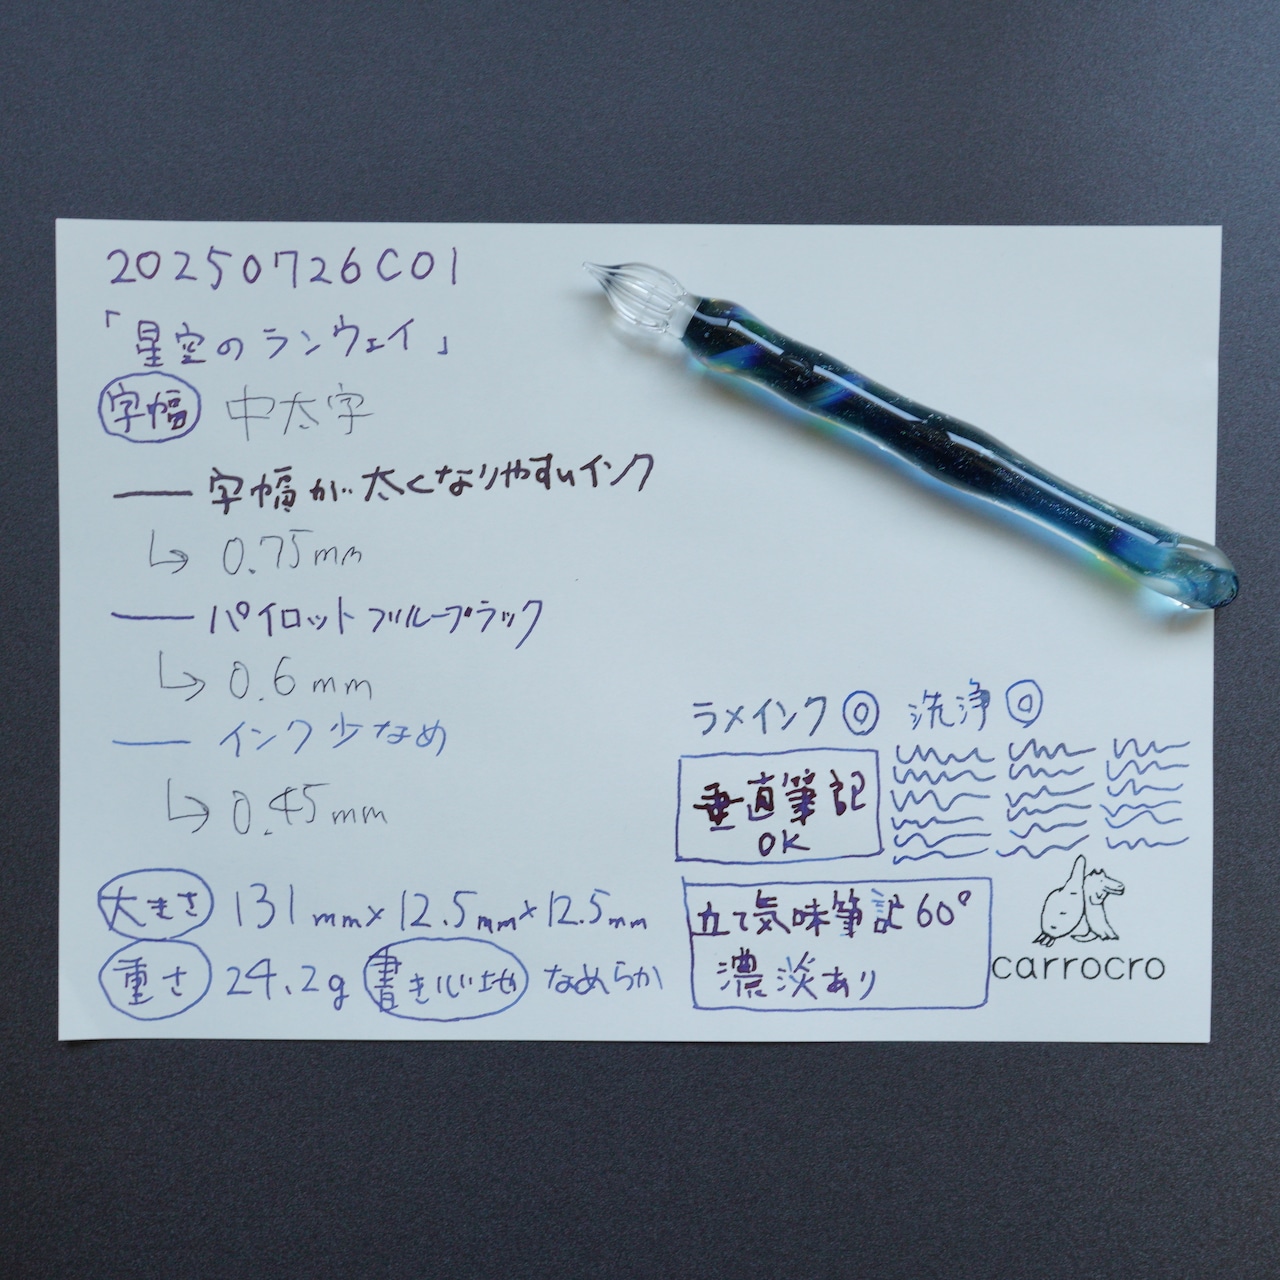 20250726C01
「星空のランウェイ」
字幅 中太字
字幅が太くなりやすいインク
0.75mm
パイロットブルーブラック
0.6mm
インク少なめ
0.45mm
ラメインク◎ 洗浄◎
垂直筆記
OK
大きさ 131mm×12.5mm×12.5mm
重さ 24.2g 書き心地 なめらか
立て気味筆記60°
濃淡あり
carrocro